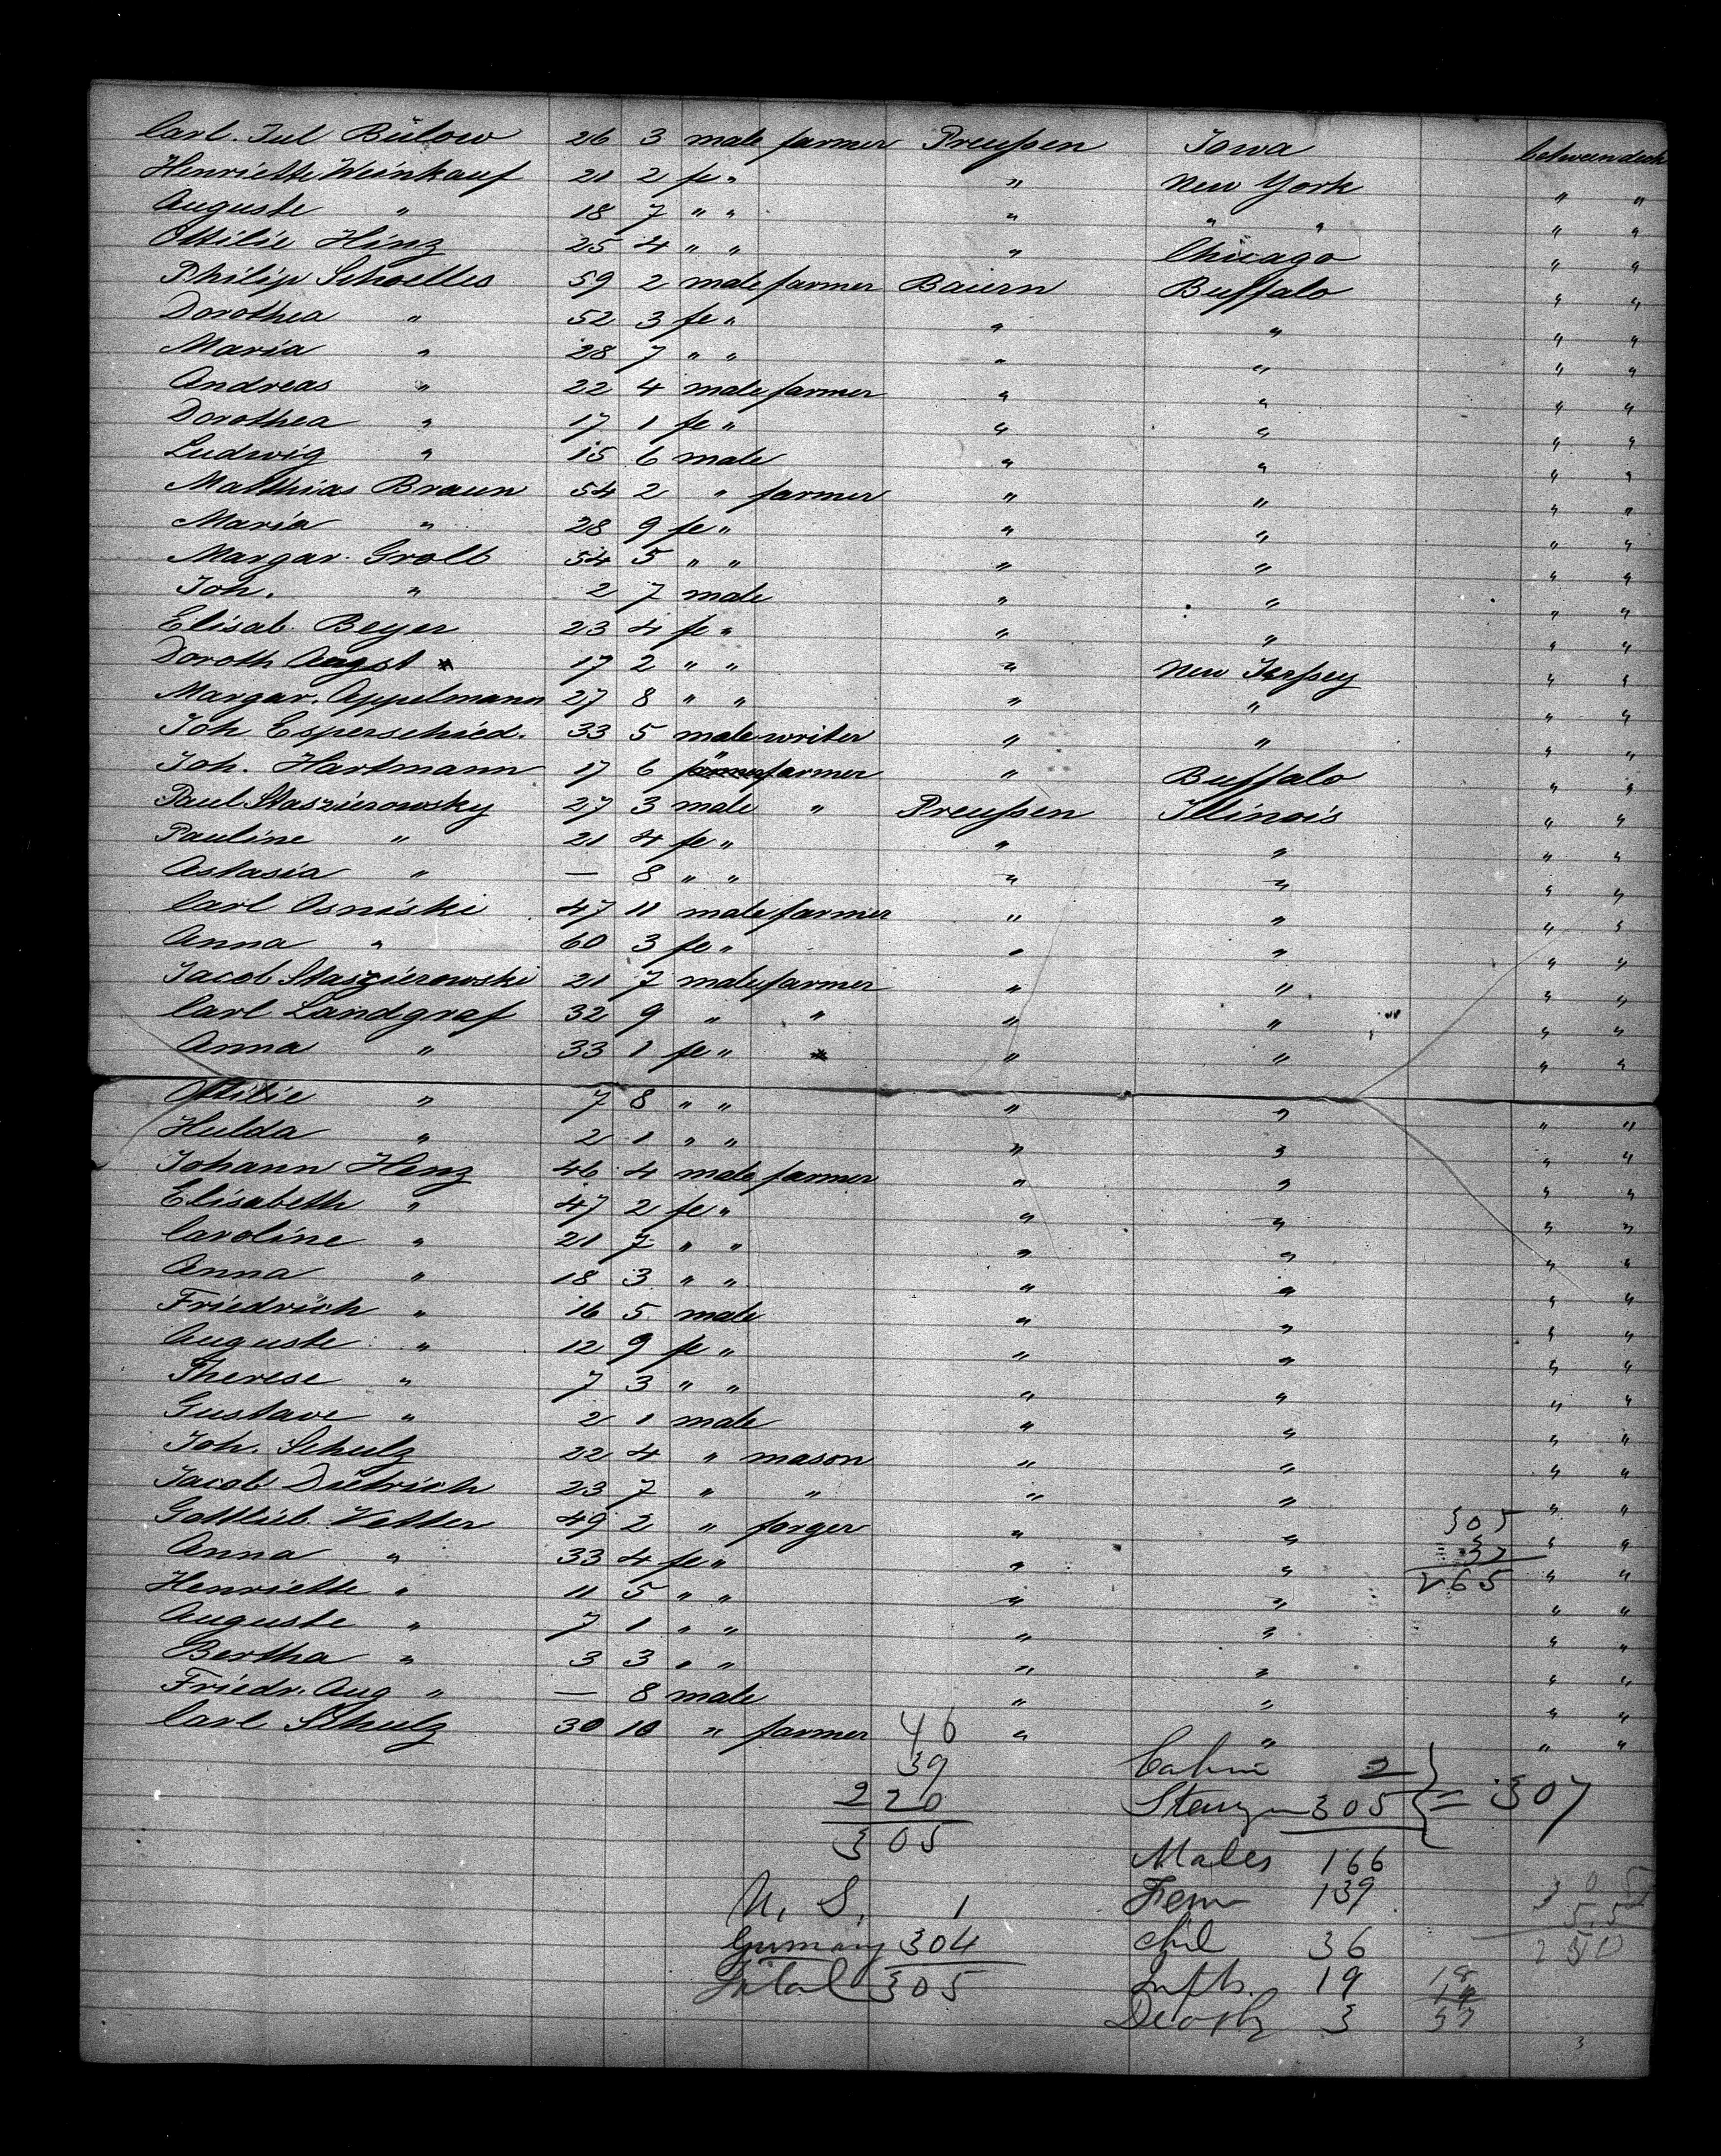 Carl. Jul Bülow 26 3 male farmer Preußen Iowa between deck
Henriette Weinkauf 21 2 fe " " New York " "
Auguste " 18 7 " " " " " " "
Ottilie Hinz 25 4 " " " Chicago " "
Philip Schoelles 59 2 male farmer Baiern Buffalo " "
Dorothea " 52 3 fe " " " " "
Maria " 28 7 " " " " " "
Andreas " 22 4 male farmer " " " "
Dorothea " 17 1 fe " " " " "
Ludwig " 15 6 male " " " "
Matthias Braun 54 2 " farmer " " " "
Maria " 28 9 fe " " " " "
Margar. Grolb 54 5 " " " " " "
Joh. " 2 7 male " " " "
Elisab. Beyer 23 4 fe " " " " "
Doroth Angst 17 2 " " " New Jerßey " "
Margar. Appelmann 27 8 " " " " " "
Joh Esperschied. 33 5 male writer " " " "
Joh. Hartmann 17 6 " farmer " Buffalo " "
Paul Staszierowsky 27 3 male " Preußen Illinois " "
Pauline " 21 4 fe " " " " "
Astasia " — 8 " " " " " "
Carl Osniski 47 11 male farmer " " " "
Anna " 60 3 fe " " " " "
Jacob Staszierowski 21 7 male farmer " " " "
Carl Landgraf 32 9 " " " " " "
Anna " 33 1 fe " " " " "
Ottilie " 7 8 " " " " " "
Hulda " 2 1 " " " " " "
Johann Henz 46 4 male farmer " " " "
Elisabeth " 47 2 fe " " " " "
Caroline " 21 7 " " " " " "
Anna " 18 3 " " " " " "
Friedrich " 16 5 male " " " "
Auguste " 12 9 fe " " " " "
Therese " 7 3 " " " " " "
Gustave " 2 1 male " " " "
Joh. Schulz 22 4 " mason " " " "
Jacob Dietrich 23 7 " " " " " "
Gottlieb Vetter 49 2 " forger " " 305 " "
Anna " 33 4 fe " " " 37 " "
Henriette " 11 5 " " " " 265 " "
Auguste " 7 1 " " " " " "
Bertha " 3 3 " " " " " "
Friedr. Aug " — 8 male " " " "
Carl Schulz 30 10 " farmer " " " "
46
39 Cabin 2
220 Steerage 305 = 307
305
Males 166
U. S. 1 Fem 139
Germany 304 Chil 36
Total 305 Infts. 19
Deaths 3